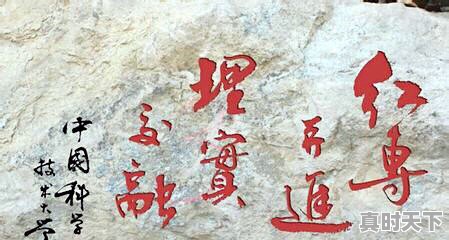 红專
并進
理實
交融
中国科学
技术大学
真时天下